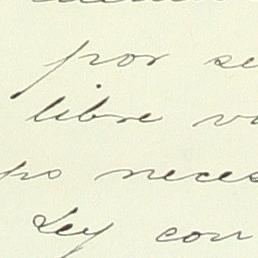 por se
libre vo
po neces
Ley con